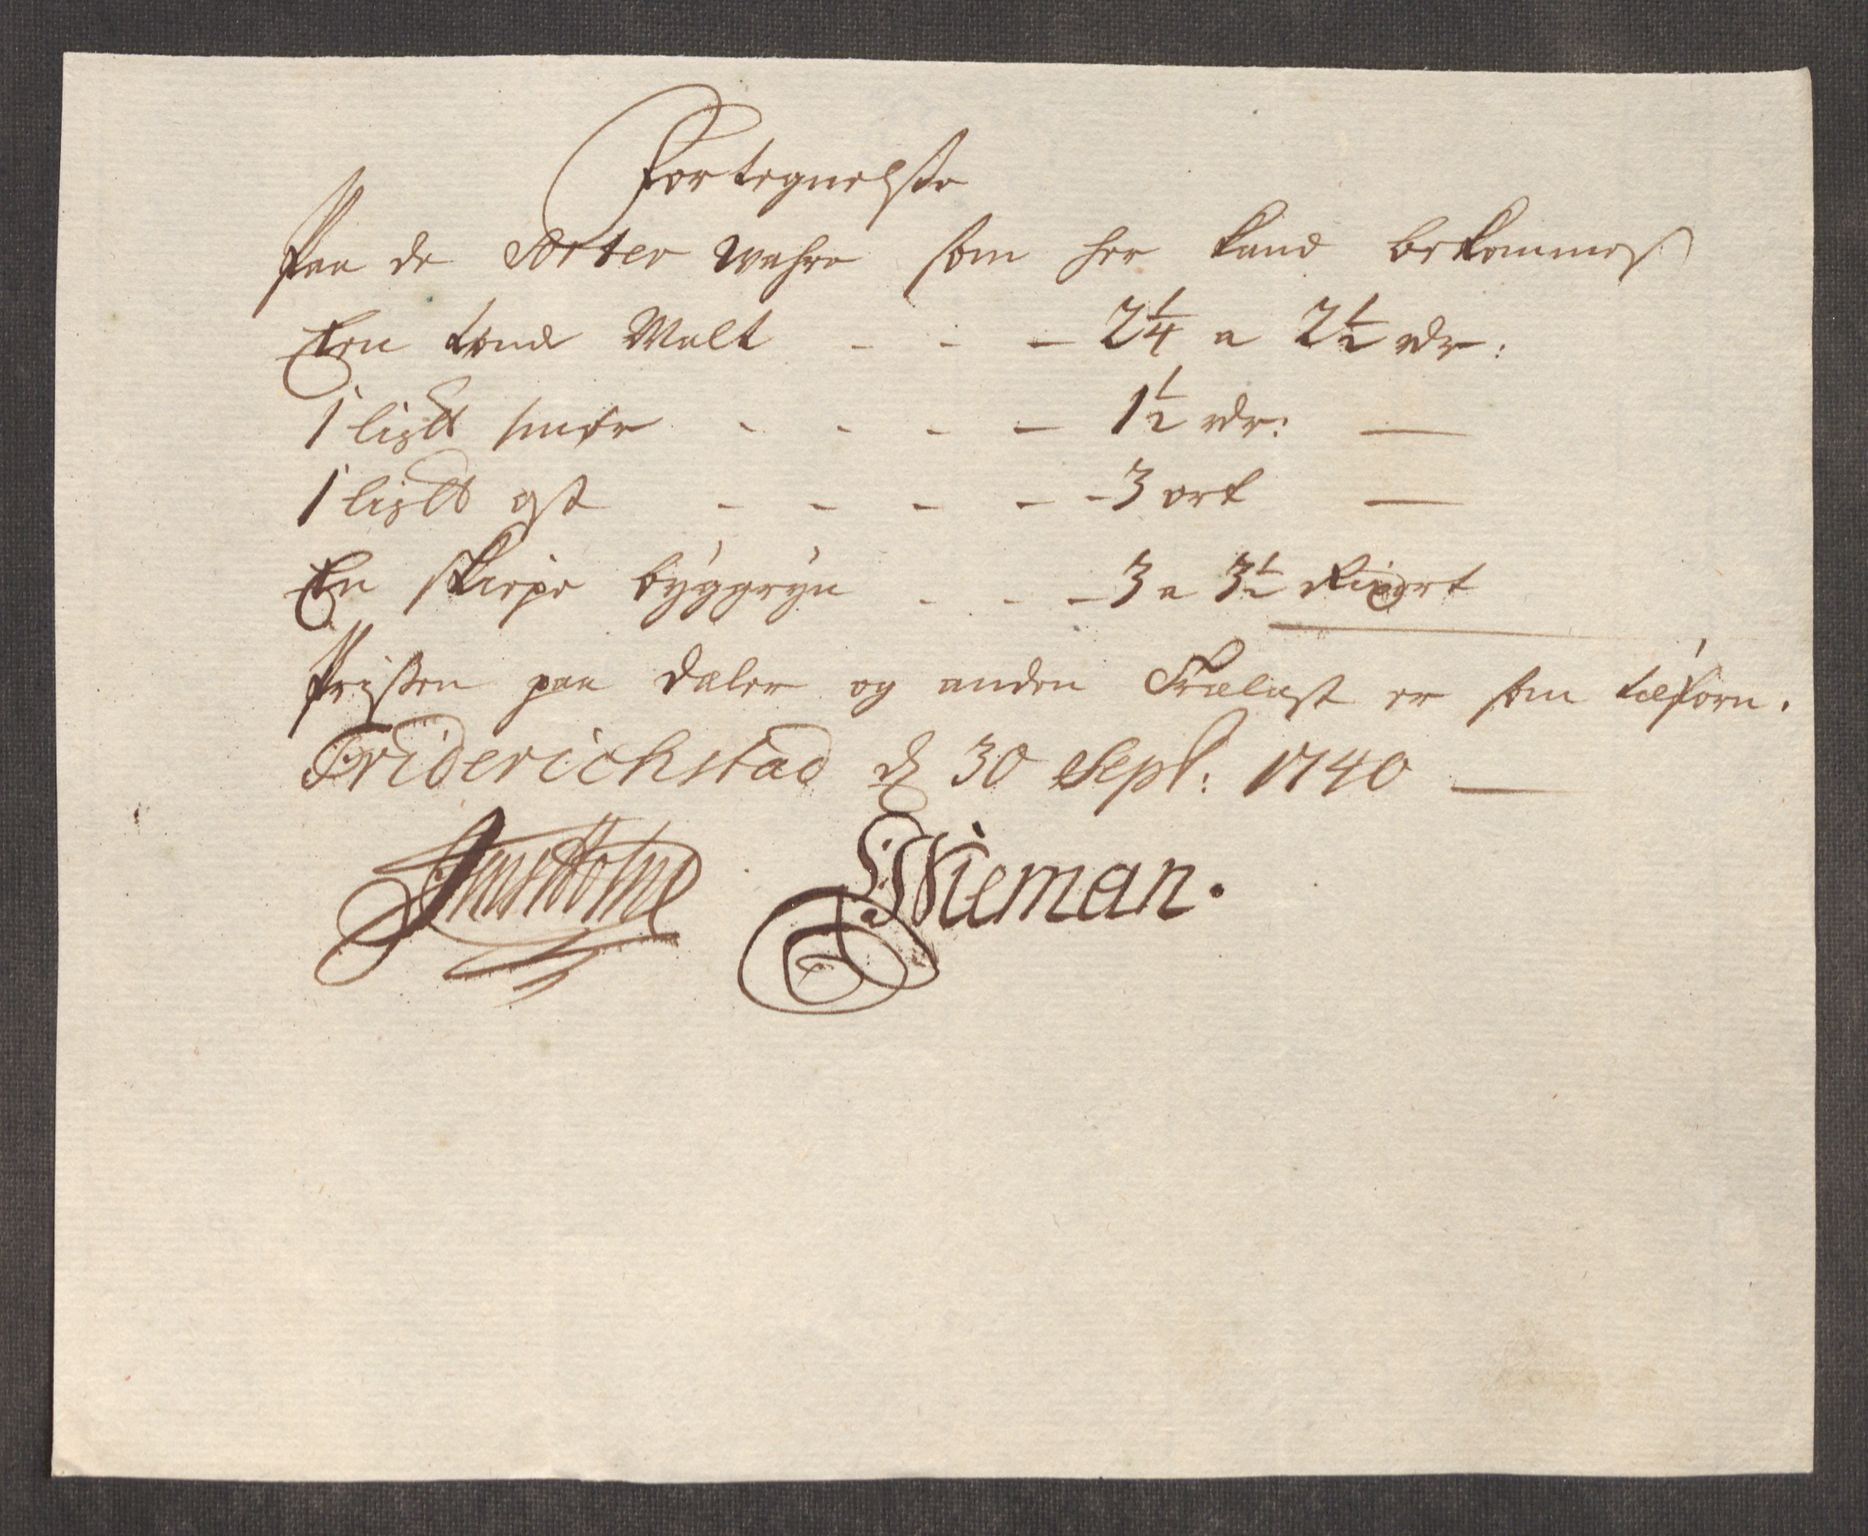 Fortegnelsse
Paa de Sorter wahre som her kand bekommes
Een tønde Malt - - - 2 1/4 a 2 1/2 rdr:
1 lis℔ smør - - - - 1 1/2 rdr: —
1 lis℔ ost - - - - - 3 ort —
En skiepe byggryn - - - 3 a 3 1/2 Rixort
Prissen paa daler og anden Trælast er som tilforn.
Friderichstad d 30 Sept: 1740 —
Jens Holme Wieman.